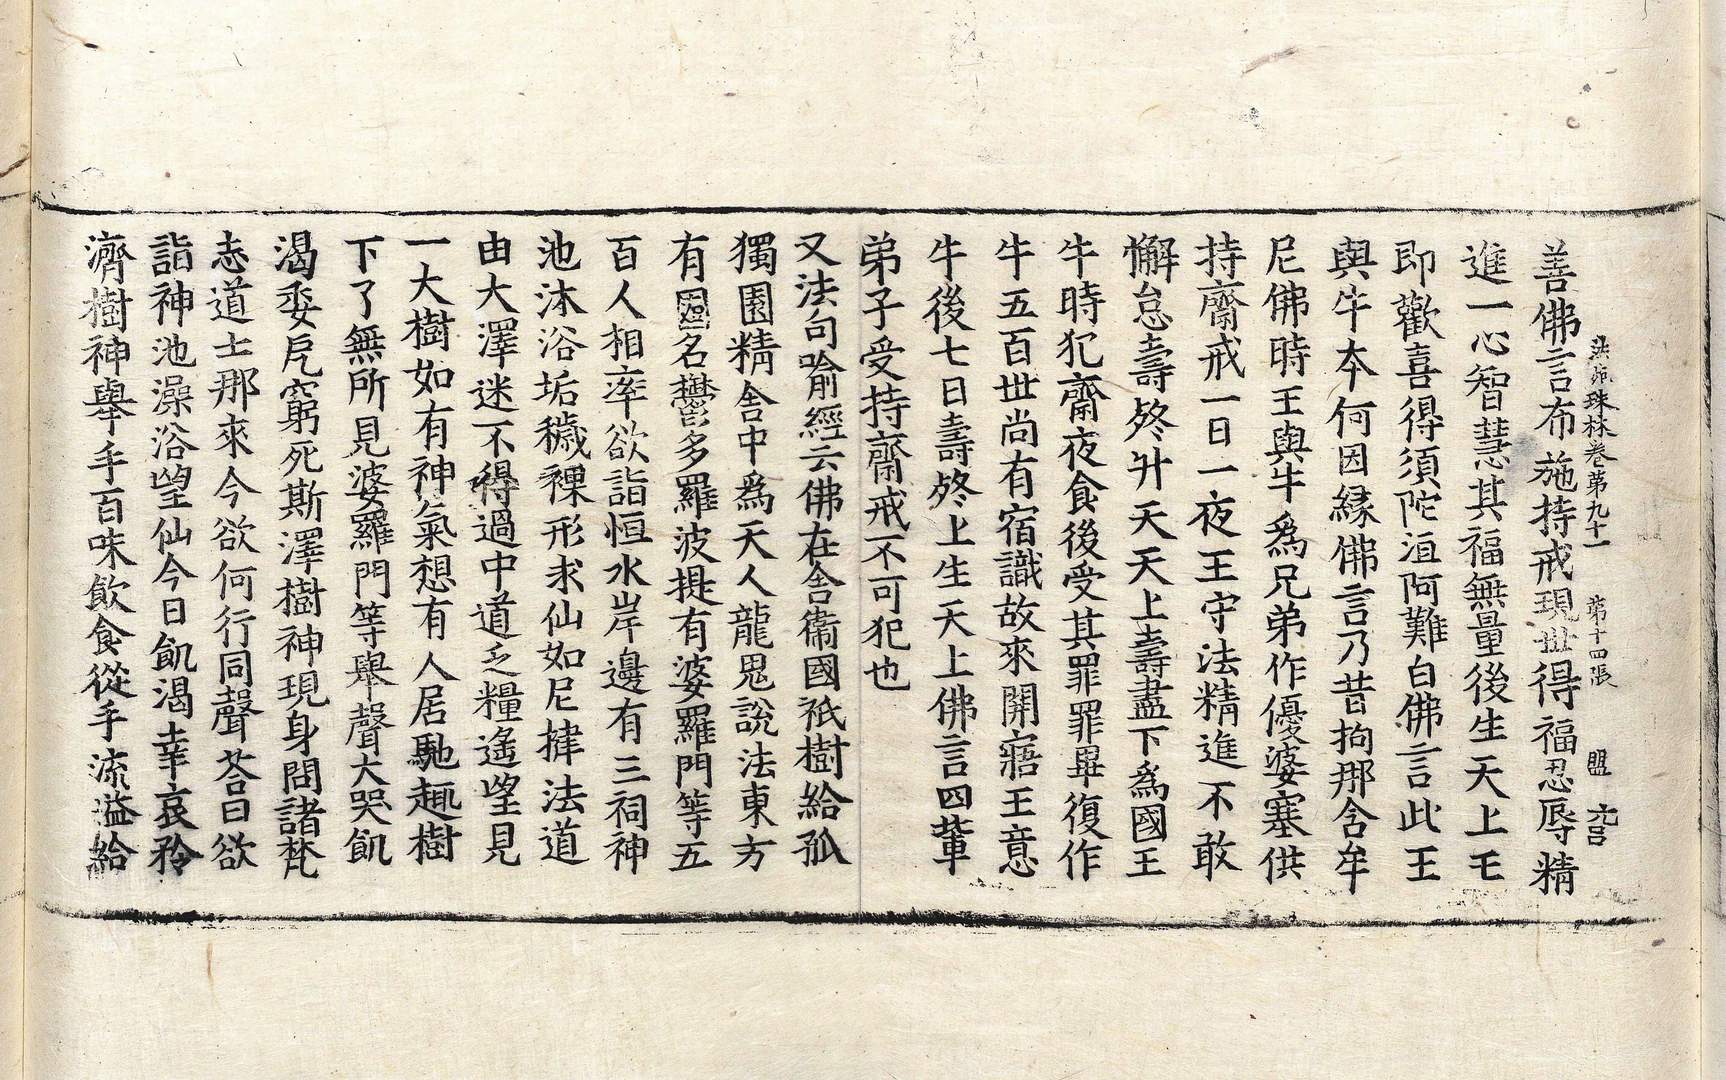 法苑珠林卷第九十一 第十四張 盟
善佛言布施持戒現世得福忍辱精
進一心智慧其福無量後生天上王
即歡喜得須陀洹阿難白佛言此王
與牛本何因緣佛言乃昔拘那含牟
尼佛時王與牛爲兄弟作優婆塞供
持齋戒一日一夜王守法精進不敢
懈怠壽終升天天上壽盡下爲國王
牛時犯齋夜食後受其罪罪畢復作
牛五百世尚有宿識故來開寤王意
牛後七日壽終上生天上佛言四輩
弟子受持齋戒不可犯也
又法句喻經云佛在舍衞國祇樹給孤
獨園精舍中爲天人龍鬼說法東方
有國名鬱多羅波提有婆羅門等五
百人相率欲詣恒水岸邊有三祠神
池沐浴垢穢裸形求仙如尼揵法道
由大澤迷不得過中道乏糧遙望見
一大樹如有神氣想有人居馳趣樹
下了無所見婆羅門等舉聲大哭飢
渴委厄窮死斯澤樹神現身問諸梵
志道士那來今欲何行同聲答曰欲
詣神池澡浴望仙今日飢渴幸哀矜
濟樹神舉手百味飲食從手流溢給